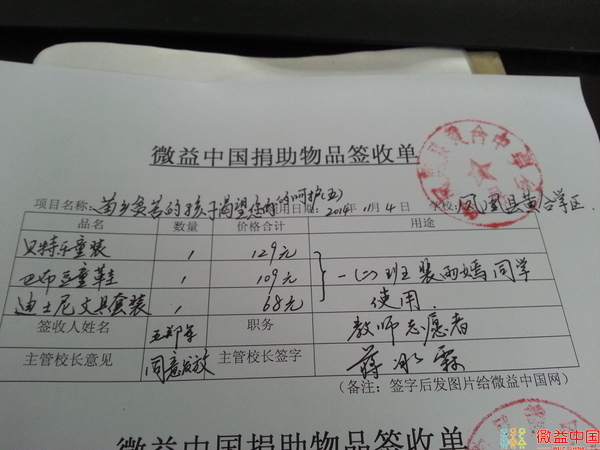 微益中国捐助物品签收单
项目名称:苗乡贫苦的孩子渴望您的呵护(五) 使用日期:2014年11月4日 学校:凤凰县黄合学区
品名 数量 价格合计 用途
贝特乐童装 1 129元
巴布豆童鞋 1 109元 一(二)班 同学
迪士尼文具套装 1 68元 使用.
签收人姓名 职务 教师志愿者
主管校长意见 同意发放 主管校长签字 蒋冰霖
(备注:签字后发图片给微益中国网)
微益中国捐助物品签收单
微益中国